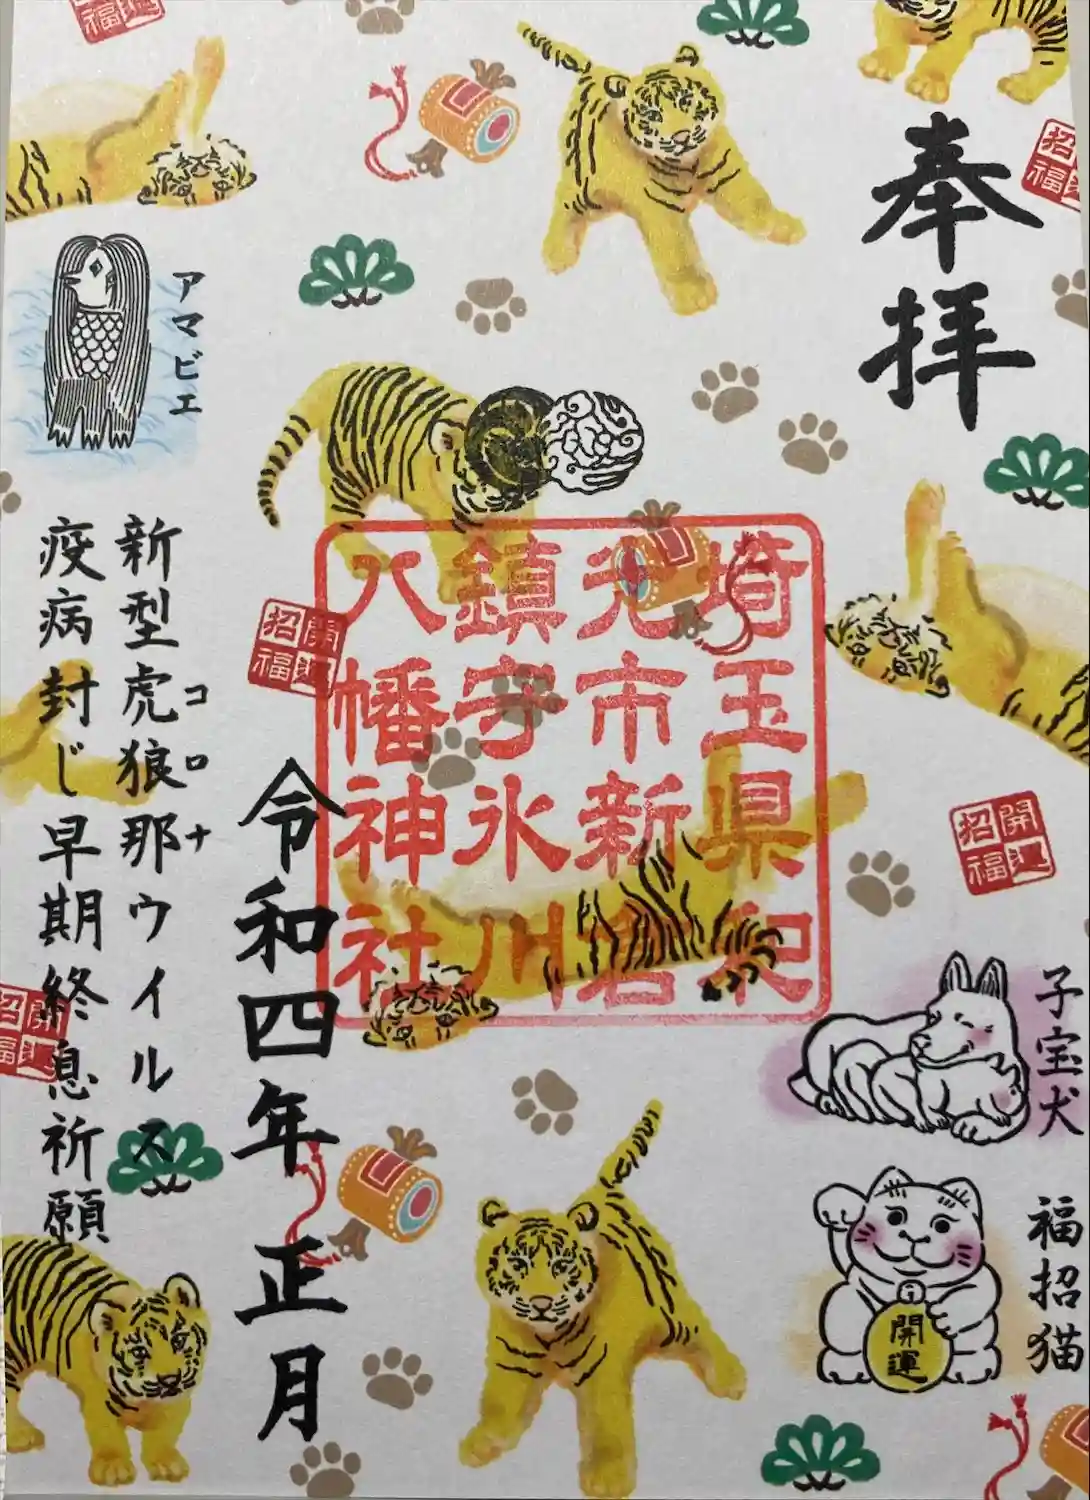 奉拝
埼玉県和
光市新倉
鎮守氷川
八幡神社
令和四年正月
アマビエ
新型虎狼那ウイルス
コロナ
疫病封じ早期終息祈願
子宝犬
福招猫
開運
開運
招福
開運
招福
開運
招福
開運
招福
招福